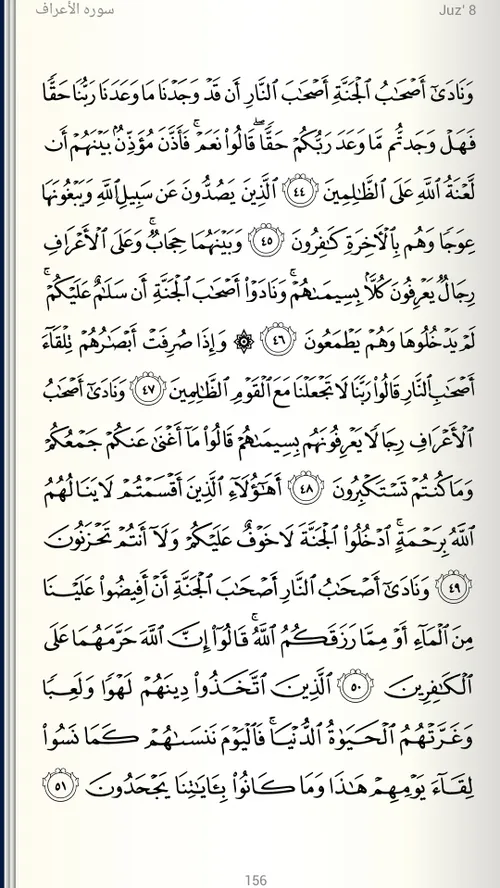 سورة الأعراف
Juz' 8
وَنَادَىٰٓ أَصْحَٰبُ ٱلْجَنَّةِ أَصْحَٰبَ ٱلنَّارِ أَن قَدْ وَجَدْنَا مَا وَعَدَنَا رَبُّنَا حَقًّا
فَهَلْ وَجَدتُّم مَّا وَعَدَ رَبُّكُمْ حَقًّا ۖ قَالُوا۟ نَعَمْ ۚ فَأَذَّنَ مُؤَذِّنٌۢ بَيْنَهُمْ أَن
لَّعْنَةُ ٱللَّهِ عَلَى ٱلظَّٰلِمِينَ ٤٤ ٱلَّذِينَ يَصُدُّونَ عَن سَبِيلِ ٱللَّهِ وَيَبْغُونَهَا
عِوَجًا وَهُم بِٱلْءَاخِرَةِ كَٰفِرُونَ ٤٥ وَبَيْنَهُمَا حِجَابٌ ۚ وَعَلَى ٱلْأَعْرَافِ
رِجَالٌ يَعْرِفُونَ كُلًّۢا بِسِيمَىٰهُمْ ۚ وَنَادَوْا۟ أَصْحَٰبَ ٱلْجَنَّةِ أَن سَلَٰمٌ عَلَيْكُمْ ۚ
لَمْ يَدْخُلُوهَا وَهُمْ يَطْمَعُونَ ٤٦ ۞ وَإِذَا صُرِفَتْ أَبْصَٰرُهُمْ تِلْقَآءَ
أَصْحَٰبِ ٱلنَّارِ قَالُوا۟ رَبَّنَا لَا تَجْعَلْنَا مَعَ ٱلْقَوْمِ ٱلظَّٰلِمِينَ ٤٧ وَنَادَىٰٓ أَصْحَٰبُ
ٱلْأَعْرَافِ رِجَالًا يَعْرِفُونَهُم بِسِيمَىٰهُمْ قَالُوا۟ مَآ أَغْنَىٰ عَنكُمْ جَمْعُكُمْ
وَمَا كُنتُمْ تَسْتَكْبِرُونَ ٤٨ أَهَٰٓؤُلَآءِ ٱلَّذِينَ أَقْسَمْتُمْ لَا يَنَالُهُمُ
ٱللَّهُ بِرَحْمَةٍ ۚ ٱدْخُلُوا۟ ٱلْجَنَّةَ لَا خَوْفٌ عَلَيْكُمْ وَلَآ أَنتُمْ تَحْزَنُونَ
٤٩ وَنَادَىٰٓ أَصْحَٰبُ ٱلنَّارِ أَصْحَٰبَ ٱلْجَنَّةِ أَنْ أَفِيضُوا۟ عَلَيْنَا
مِنَ ٱلْمَآءِ أَوْ مِمَّا رَزَقَكُمُ ٱللَّهُ ۚ قَالُوٓا۟ إِنَّ ٱللَّهَ حَرَّمَهُمَا عَلَى
ٱلْكَٰفِرِينَ ٥٠ ٱلَّذِينَ ٱتَّخَذُوا۟ دِينَهُمْ لَهْوًا وَلَعِبًا
وَغَرَّتْهُمُ ٱلْحَيَوٰةُ ٱلدُّنْيَا ۚ فَٱلْيَوْمَ نَنسَىٰهُمْ كَمَا نَسُوا۟
لِقَآءَ يَوْمِهِمْ هَٰذَا وَمَا كَانُوا۟ بِـَٔايَٰتِنَا يَجْحَدُونَ ٥١
156